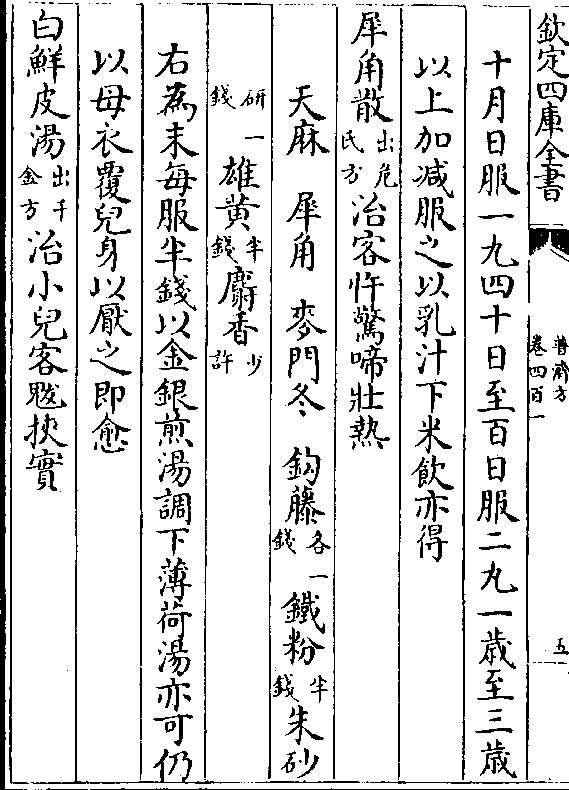 欽定四庫全書
普濟方
卷四百一
五
十月日服一丸四十日至百日服二丸一歳至三歳
以上加減服之以乳汁下米飲亦得
犀角散出危氏方治客忤驚啼壯熱
天麻 犀角 麥門冬 鈎藤各一錢 鐵粉半錢 朱砂
研一錢 雄黄半錢 麝香少許
右為末每服半錢以金銀煎湯調下薄荷湯亦可仍
以母衣覆兒身以厭之即愈
白鮮皮湯出千金方治小兒客䀝挾實